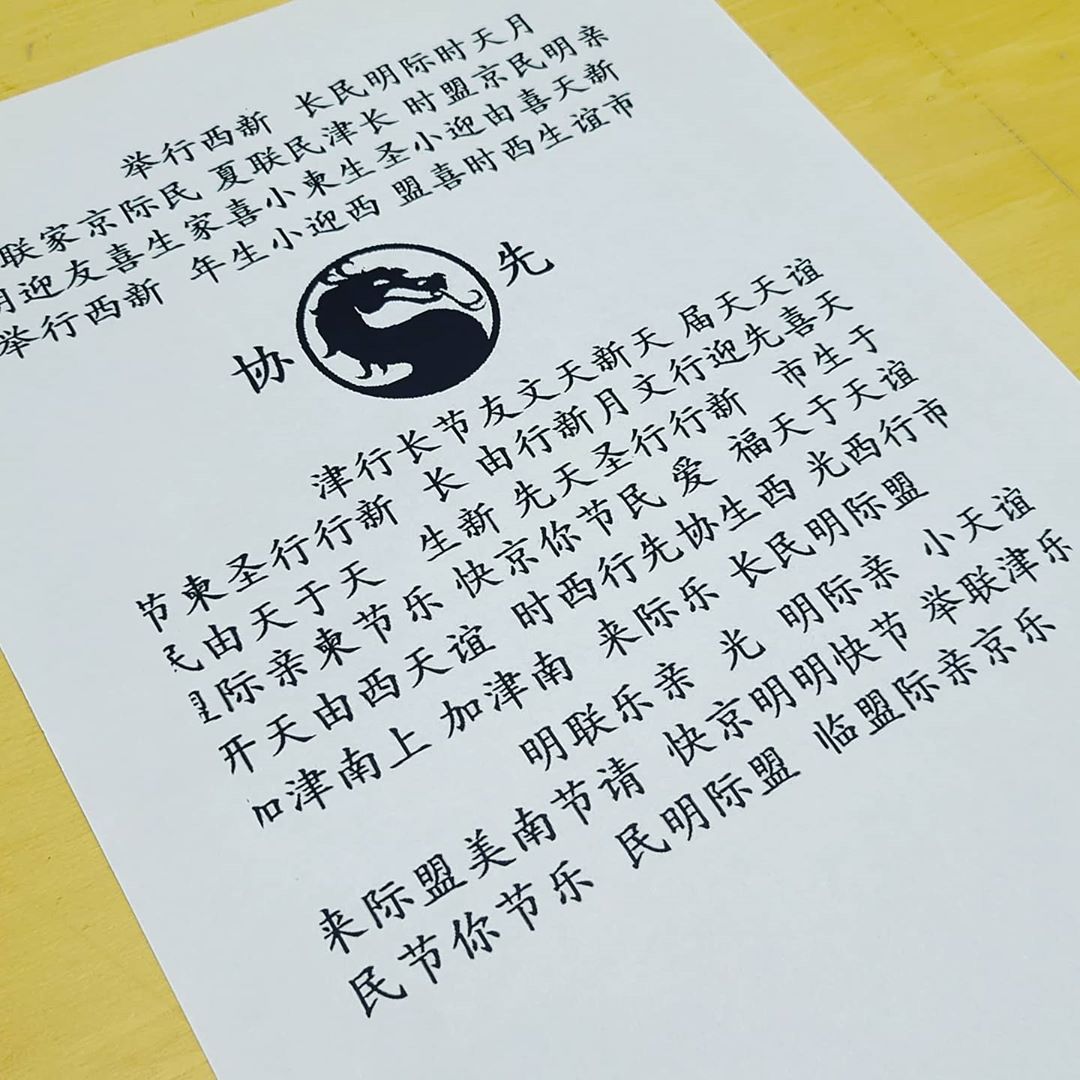 举行西新 长民明际时天月
联家京际民 夏联民津长 时盟京民明亲
月迎友喜生家喜小柬生圣小迎由喜天新
举行西新 年生小迎西 盟喜时西生谊市
协 先
津行长节友文天新天 届天天谊
节柬圣行行新 长 由行新月文行迎先喜天
民由天于天 生新 先天圣行行新 市生于
盟际亲柬节乐 快京你节民 爱 福天于天谊
开天由西天谊 时西行先协生西 光西行市
加津南上 加津南 来际乐 长民明际盟
明联乐亲 光 明际亲 小天谊
来际盟美南节请 快京明明快节 举联津乐
民节你节乐 民明际盟 临盟际亲京乐